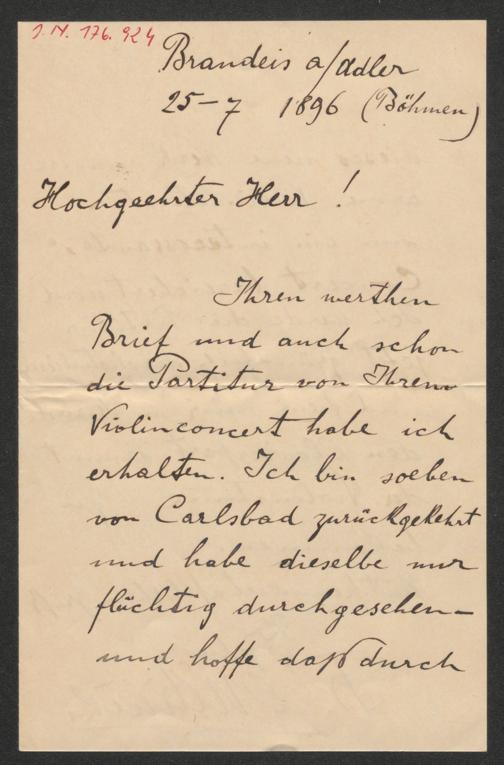 J. N. 176.924
Brandeis a/Adler
25-7 1896 (Böhmen)
Hochgeehrter Herr!
Ihren werthen
Brief und auch schon
die Partitur von Ihrem
Violinconcert habe ich
erhalten. Ich bin soeben
von Carlsbad zurückgekehrt
und habe dieselbe nur
flüchtig durchgesehen –
und hoffe daß durch